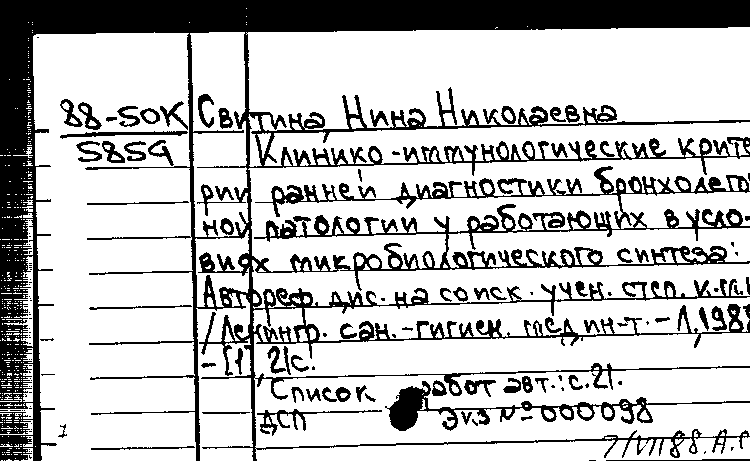 88-50К Свитина, Нина Николаевна
5859 Клинико-иммунологические крите
рии ранней диагностики бронхолего
ной патологии у работающих в усло-
виях микробиологического синтеза:
Автореф. дис. на соиск. учен. степ. к.м.н
/Ленингр. сан.-гигиен. мед. ин-т. - Л., 1988
- [1], 21с.
Список работ авт.: с.21.
ДСП Экз № 000098
1
7/VII 88. А.